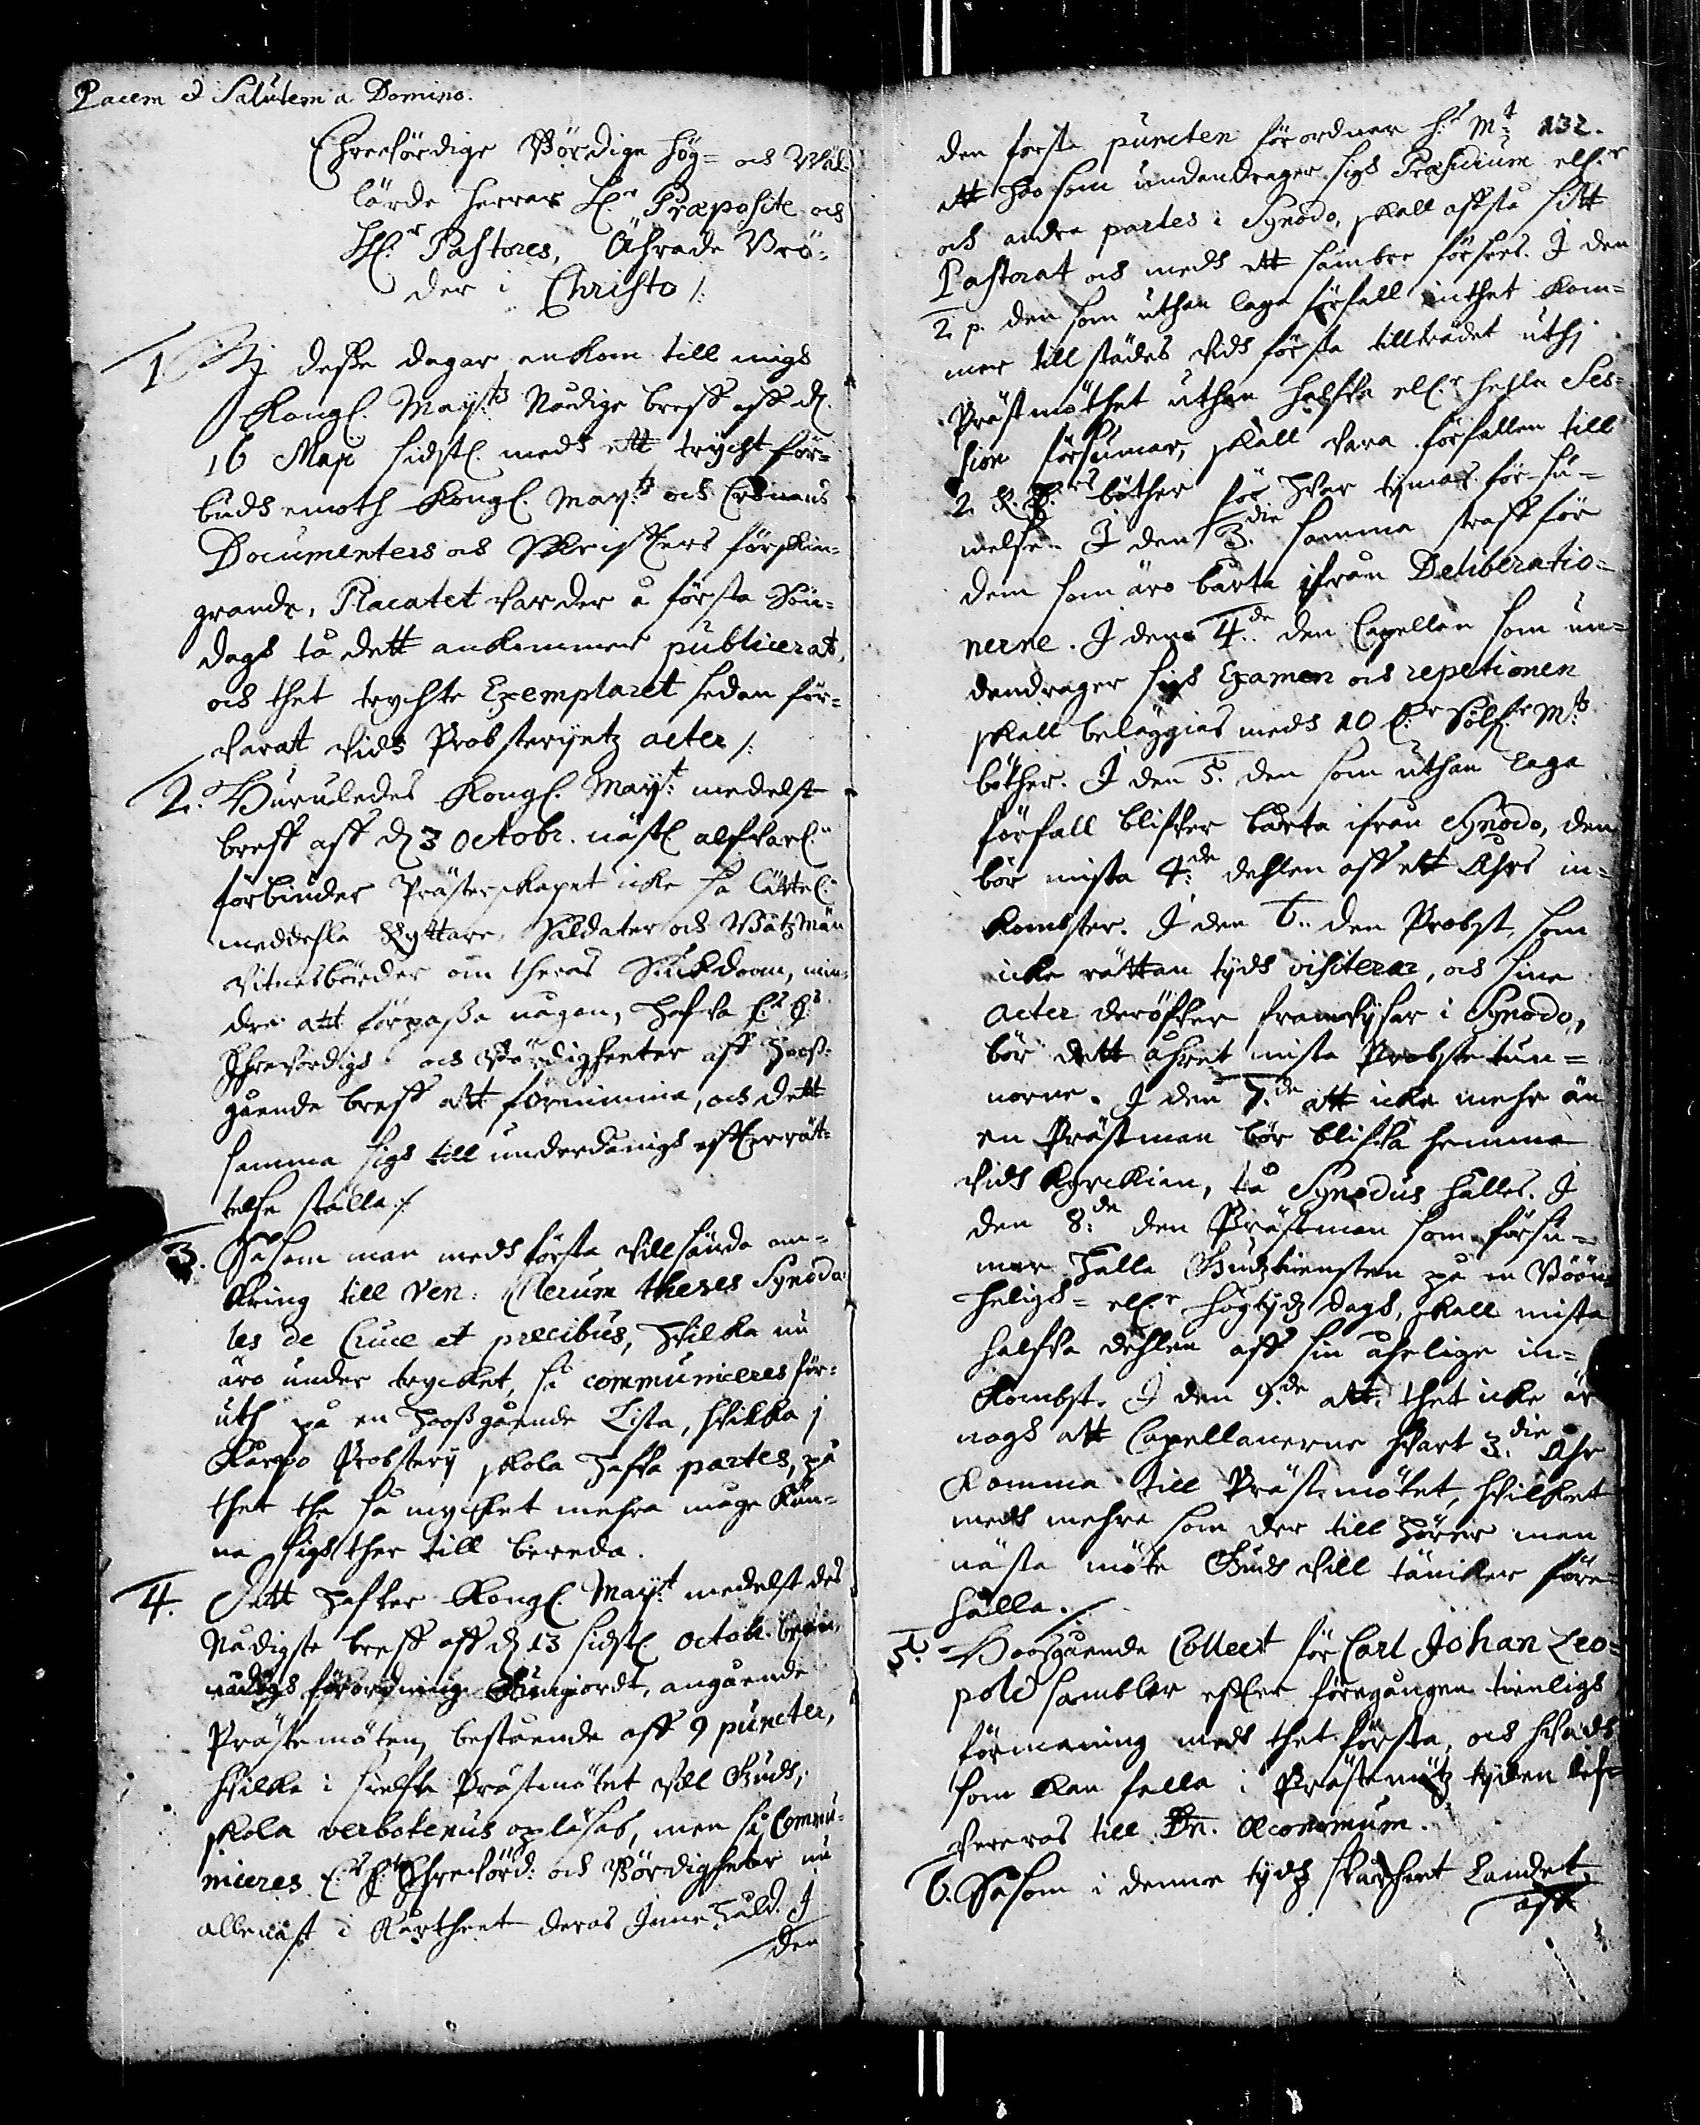 Pacem et Salutem a Domino.
Ehrevördige Vördige Hög= och Wäl=
lärde Herrar H:r Præposite och
HH:r Pastores, Ährade Brö-
der i Christo /:
1 Vti desse dagar ankom till migh
Kongl. May:ttz Nådige breff aff d.
16 Maji sidstl. medh ett tryckt för-
budh emoth Kongl. May:ttz och Cronans
Documenters och Skriffters förskin-
grande, Placatet varder å första Sön-
dagh tå dett ankommer publicerat,
och thet tryckte Exemplaret sedan för-
varat vidh Probsterijetz acter /:
2. Huruledes Kongl. May:t medelst
breff aff d 3 Octobr. nästl. alfvarl:n
förbinder Prästerskapet icke så lättel:n
meddehla Ryttare, Soldater och Båtzmän
vitnesbörder om theras Siukdoom, min-
dre att förpassa någon, hafva E:r
Ehrevördigh= och Vördigheeter aff hooss-
gående breff att förnimma, och dett
samma sigh till underdånigh effterrät-
telse ställa /:
3. Såsom man medh första vill sända om-
kring till Ven: Clerum theses Synoda-
les de Cruce et precibus, hvilka nu
äro under trycket, så communiceres för-
uth på en hoossgående Lista, hvilka j
Korpo Probsterij skola hafva partes, på
thet the så mycket mehra måge kun-
na sigh ther till bereda.
4. Dett hafver Kongl. May:t medelst des
Nådigste breff aff d 13 sidstl. Octobr.
förordning kungiordt, angående
Prästemöten, bestående aff 9 puncter,
hvilka i sielfva Prästmötet vill Gudh,
skola verbotenus opläsas, men så commu-
niceres E:r Ehrevörd: och Vördigheeter nu
allenast i Kortheet deras Innehåld. I
den
132.
den första puncten förordnar H:s M:t
att hoo som undandrager sigh Præsidium ell:r
och andra partes i Synodo, skall afstå sitt
Pastorat och medh ett sämbre försees. I den
2. p. den som uthan laga förfall inthet kom-
mer tillstädes vidh första tillträdet uthj
Prästmöthet uthan halfva ell:r hehla Ses-
sion försumar, skall vara förfallen till
2. böther för hvar tijmas försu-
melse. I den 3:die samma straff för
dem som äro borta ifrån Deliberatio-
nerne. I den 4:de den Capellan som un-
dandrager sigh Examen och repetionen
skall beläggias medh 10 D:r Sölf:r M:tz
böther. I den 5. den som uthan laga
förfall blifver borta ifrån Synodo, den
bör mista 4:de dehlen aff ett Åhrs in-
kombster. I den 6. den Probst, som
icke rättan tijdh visiterar, och sine
acter deröfver framvijsar i Synodo,
bör dett åhret mista Probstetun-
norne. I den 7:de att icke mehr än
en Prästman bör blifva hemma
vidh Kyrckian, tå Synodus hålles. I
den 8:de den Prästman som försu-
mar hålla Gudztiensten på en Böön-
heligh= ell:r högtijdz dagh, skall mista
halfva dehlen aff sin åhrlige in-
kombst. I den 9:de att thet icke är
nogh att Capellanerne hvart 3:die Åhr
komma till Prästmötet, hvilket
medh mehra som der till hörer man
nästa möte Gudh vill täncker före-
hålla.
5. Hoossgående Collect för Carl Johan Leo-
pold sambler effter föregången tienligh
förmaning medh thet första, och hvadh
som kan falla i Prästemötz tijden lef-
vereras till Dn. Œconomum.
6. Såsom i denne tijdz Landet
aff